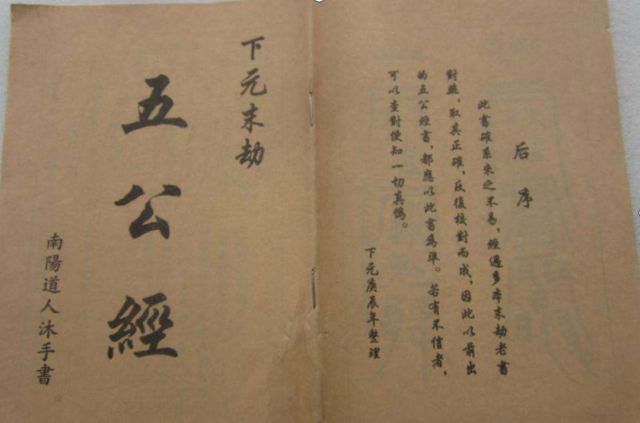 后序
此書確系來之不易，經過多本末劫老書
對照，取其正確，反復校對而成，因此以前出
的五公經書，都應以此書為準。若有不信者，
可以查對便知一切真偽。
下元庚辰年整理
下元末劫
五公經
南陽道人沐手書